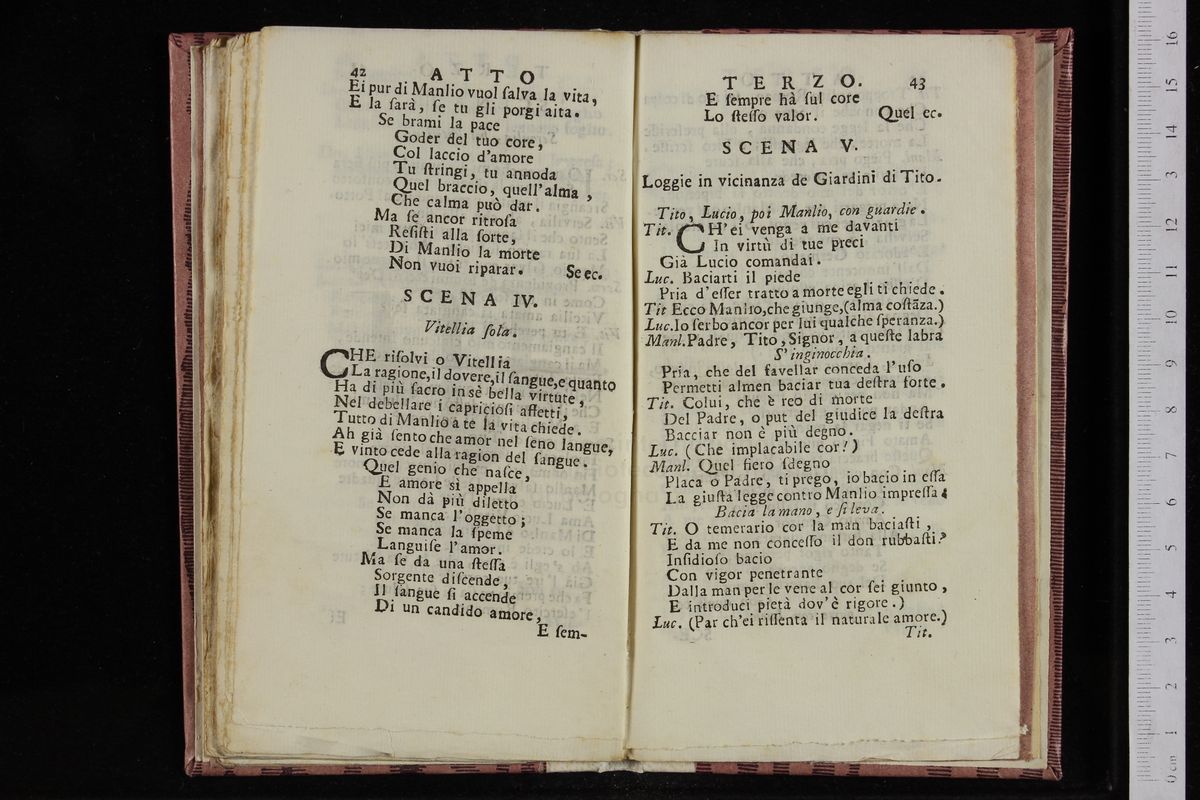 42 ATTO
Ei pur di Manlio vuol ſalva la vita,
E la ſarà, ſe tu gli porgi aita.
Se brami la pace
Goder del tuo core,
Col laccio d'amore
Tu ſtringi, tu annoda
Quel braccio, quell'alma,
Che calma può dar.
Ma ſe ancor ritroſa
Reſiſti alla ſorte,
Di Manlio la morte
Non vuoi riparar. Se ec.
SCENA IV.
Vitellia ſola.
CHE riſolvi o Vitellia
La ragione, il dovere, il ſangue, e quanto
Ha di più ſacro in sè bella virtute,
Nel debellare i capricioſi affetti,
Tutto di Manlio a te la vita chiede.
Ah già ſento che amor nel ſeno langue,
E vinto cede alla ragion del ſangue.
Quel genio che naſce,
E amore sì appella
Non dà più diletto
Se manca l'oggetto;
Se manca la ſpeme
Languiſe l'amor.
Ma ſe da una ſteſſa
Sorgente diſcende,
Il ſangue ſi accende
Di un candido amore,
E ſem-
TERZO. 43
E ſempre hà ſul core
Lo ſteſſo valor. Quel ec.
SCENA V.
Loggie in vicinanza de Giardini di Tito.
Tito, Lucio, poi Manlio, con guardie.
Tit. CH'ei venga a me davanti
In virtù di tue preci
Già Lucio comandai.
Luc. Baciarti il piede
Pria d'eſſer tratto a morte egli ti chiede.
Tit Ecco Manlio, che giunge, (alma coſtãza.)
Luc. Io ſerbo ancor per lui qualche ſperanza.)
Manl. Padre, Tito, Signor, a queſte labra
S'inginocchia.
Pria, che del favellar conceda l'uſo
Permetti almen baciar tua deſtra forte.
Tit. Colui, che è reo di morte
Del Padre, o put del giudice la deſtra
Bacciar non è più degno.
Luc. (Che implacabile cor!)
Manl. Quel fiero ſdegno
Placa o Padre, ti prego, io bacio in eſſa
La giuſta legge contro Manlio impreſſa.
Bacia la mano, e ſi leva.
Tit. O temerario cor la man baciaſti,
E da me non conceſſo il don rubbaſti?
Inſidioſo bacio
Con vigor penetrante
Dalla man per le vene al cor ſei giunto,
E introduci pietà dov'è rigore.)
Luc. (Par ch'ei riſſenta il naturale amore.)
Tit.